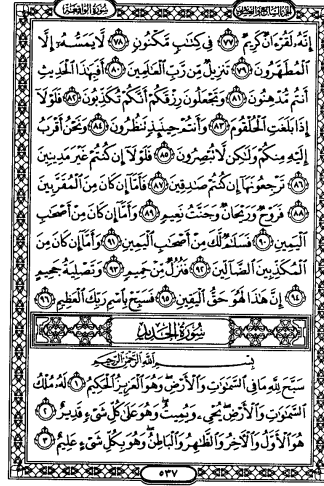 الجزء السابع والعشرون سورة الواقعة
إِنَّهُۥ لَقُرْءَانٌ كَرِيمٌ ٧٧ فِى كِتَٰبٍ مَّكْنُونٍ ٧٨ لَّا يَمَسُّهُۥٓ إِلَّا
ٱلْمُطَهَّرُونَ ٧٩ تَنزِيلٌ مِّن رَّبِّ ٱلْعَٰلَمِينَ ٨٠ أَفَبِهَٰذَا ٱلْحَدِيثِ
أَنتُم مُّدْهِنُونَ ٨١ وَتَجْعَلُونَ رِزْقَكُمْ أَنَّكُمْ تُكَذِّبُونَ ٨٢ فَلَوْلَآ
إِذَا بَلَغَتِ ٱلْحُلْقُومَ ٨٣ وَأَنتُمْ حِينَئِذٍ تَنظُرُونَ ٨٤ وَنَحْنُ أَقْرَبُ
إِلَيْهِ مِنكُمْ وَلَٰكِن لَّا تُبْصِرُونَ ٨٥ فَلَوْلَآ إِن كُنتُمْ غَيْرَ مَدِينِينَ
٨٦ تَرْجِعُونَهَآ إِن كُنتُمْ صَٰدِقِينَ ٨٧ فَأَمَّآ إِن كَانَ مِنَ ٱلْمُقَرَّبِينَ
٨٨ فَرَوْحٌ وَرَيْحَانٌ وَجَنَّتُ نَعِيمٍ ٨٩ وَأَمَّآ إِن كَانَ مِنْ أَصْحَٰبِ
ٱلْيَمِينِ ٩٠ فَسَلَٰمٌ لَّكَ مِنْ أَصْحَٰبِ ٱلْيَمِينِ ٩١ وَأَمَّآ إِن كَانَ مِنَ
ٱلْمُكَذِّبِينَ ٱلضَّآلِّينَ ٩٢ فَنُزُلٌ مِّنْ حَمِيمٍ ٩٣ وَتَصْلِيَةُ جَحِيمٍ
٩٤ إِنَّ هَٰذَا لَهُوَ حَقُّ ٱلْيَقِينِ ٩٥ فَسَبِّحْ بِٱسْمِ رَبِّكَ ٱلْعَظِيمِ ٩٦
سورة الحديد
بِسْمِ ٱللَّهِ ٱلرَّحْمَٰنِ ٱلرَّحِيمِ
سَبَّحَ لِلَّهِ مَا فِى ٱلسَّمَٰوَٰتِ وَٱلْأَرْضِ وَهُوَ ٱلْعَزِيزُ ٱلْحَكِيمُ ١ لَهُۥ مُلْكُ
ٱلسَّمَٰوَٰتِ وَٱلْأَرْضِ يُحْىِۦ وَيُمِيتُ وَهُوَ عَلَىٰ كُلِّ شَىْءٍ قَدِيرٌ ٢
هُوَ ٱلْأَوَّلُ وَٱلْءَاخِرُ وَٱلظَّٰهِرُ وَٱلْبَاطِنُ وَهُوَ بِكُلِّ شَىْءٍ عَلِيمٌ ٣
٥٣٧